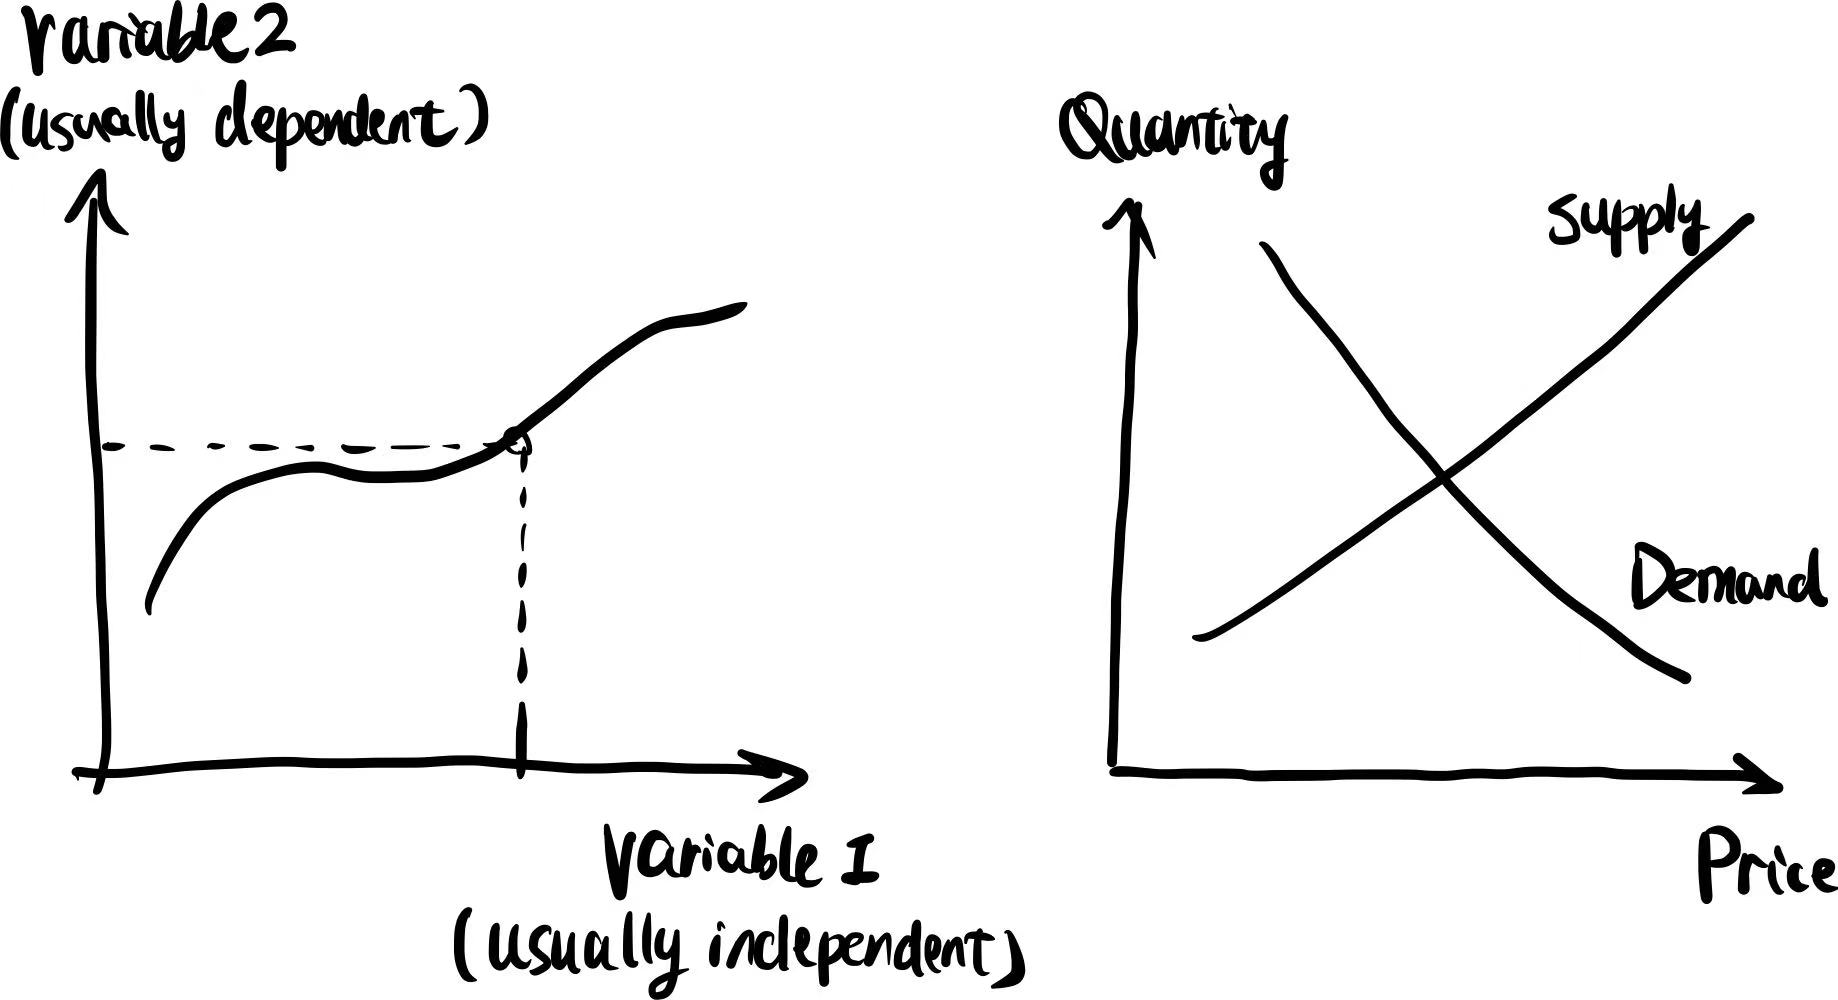 Variable 2
(usually dependent)
Variable 1
(usually independent)
Quantity
Supply
Demand
Price